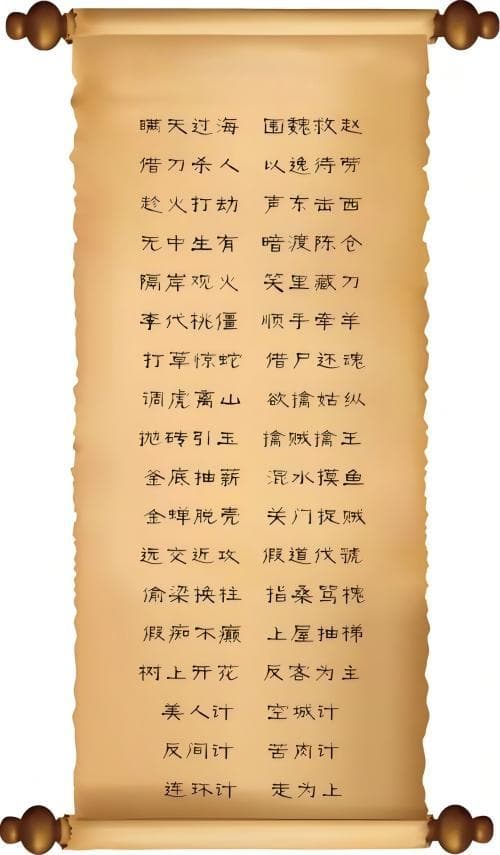 瞒天过海 围魏救赵
借刀杀人 以逸待劳
趁火打劫 声东击西
无中生有 暗渡陈仓
隔岸观火 笑里藏刀
李代桃僵 顺手牵羊
打草惊蛇 借尸还魂
调虎离山 欲擒姑纵
抛砖引玉 擒贼擒王
釜底抽薪 混水摸鱼
金蝉脱壳 关门捉贼
远交近攻 假道伐虢
偷梁换柱 指桑骂槐
假痴不癫 上屋抽梯
树上开花 反客为主
美人计 空城计
反间计 苦肉计
连环计 走为上